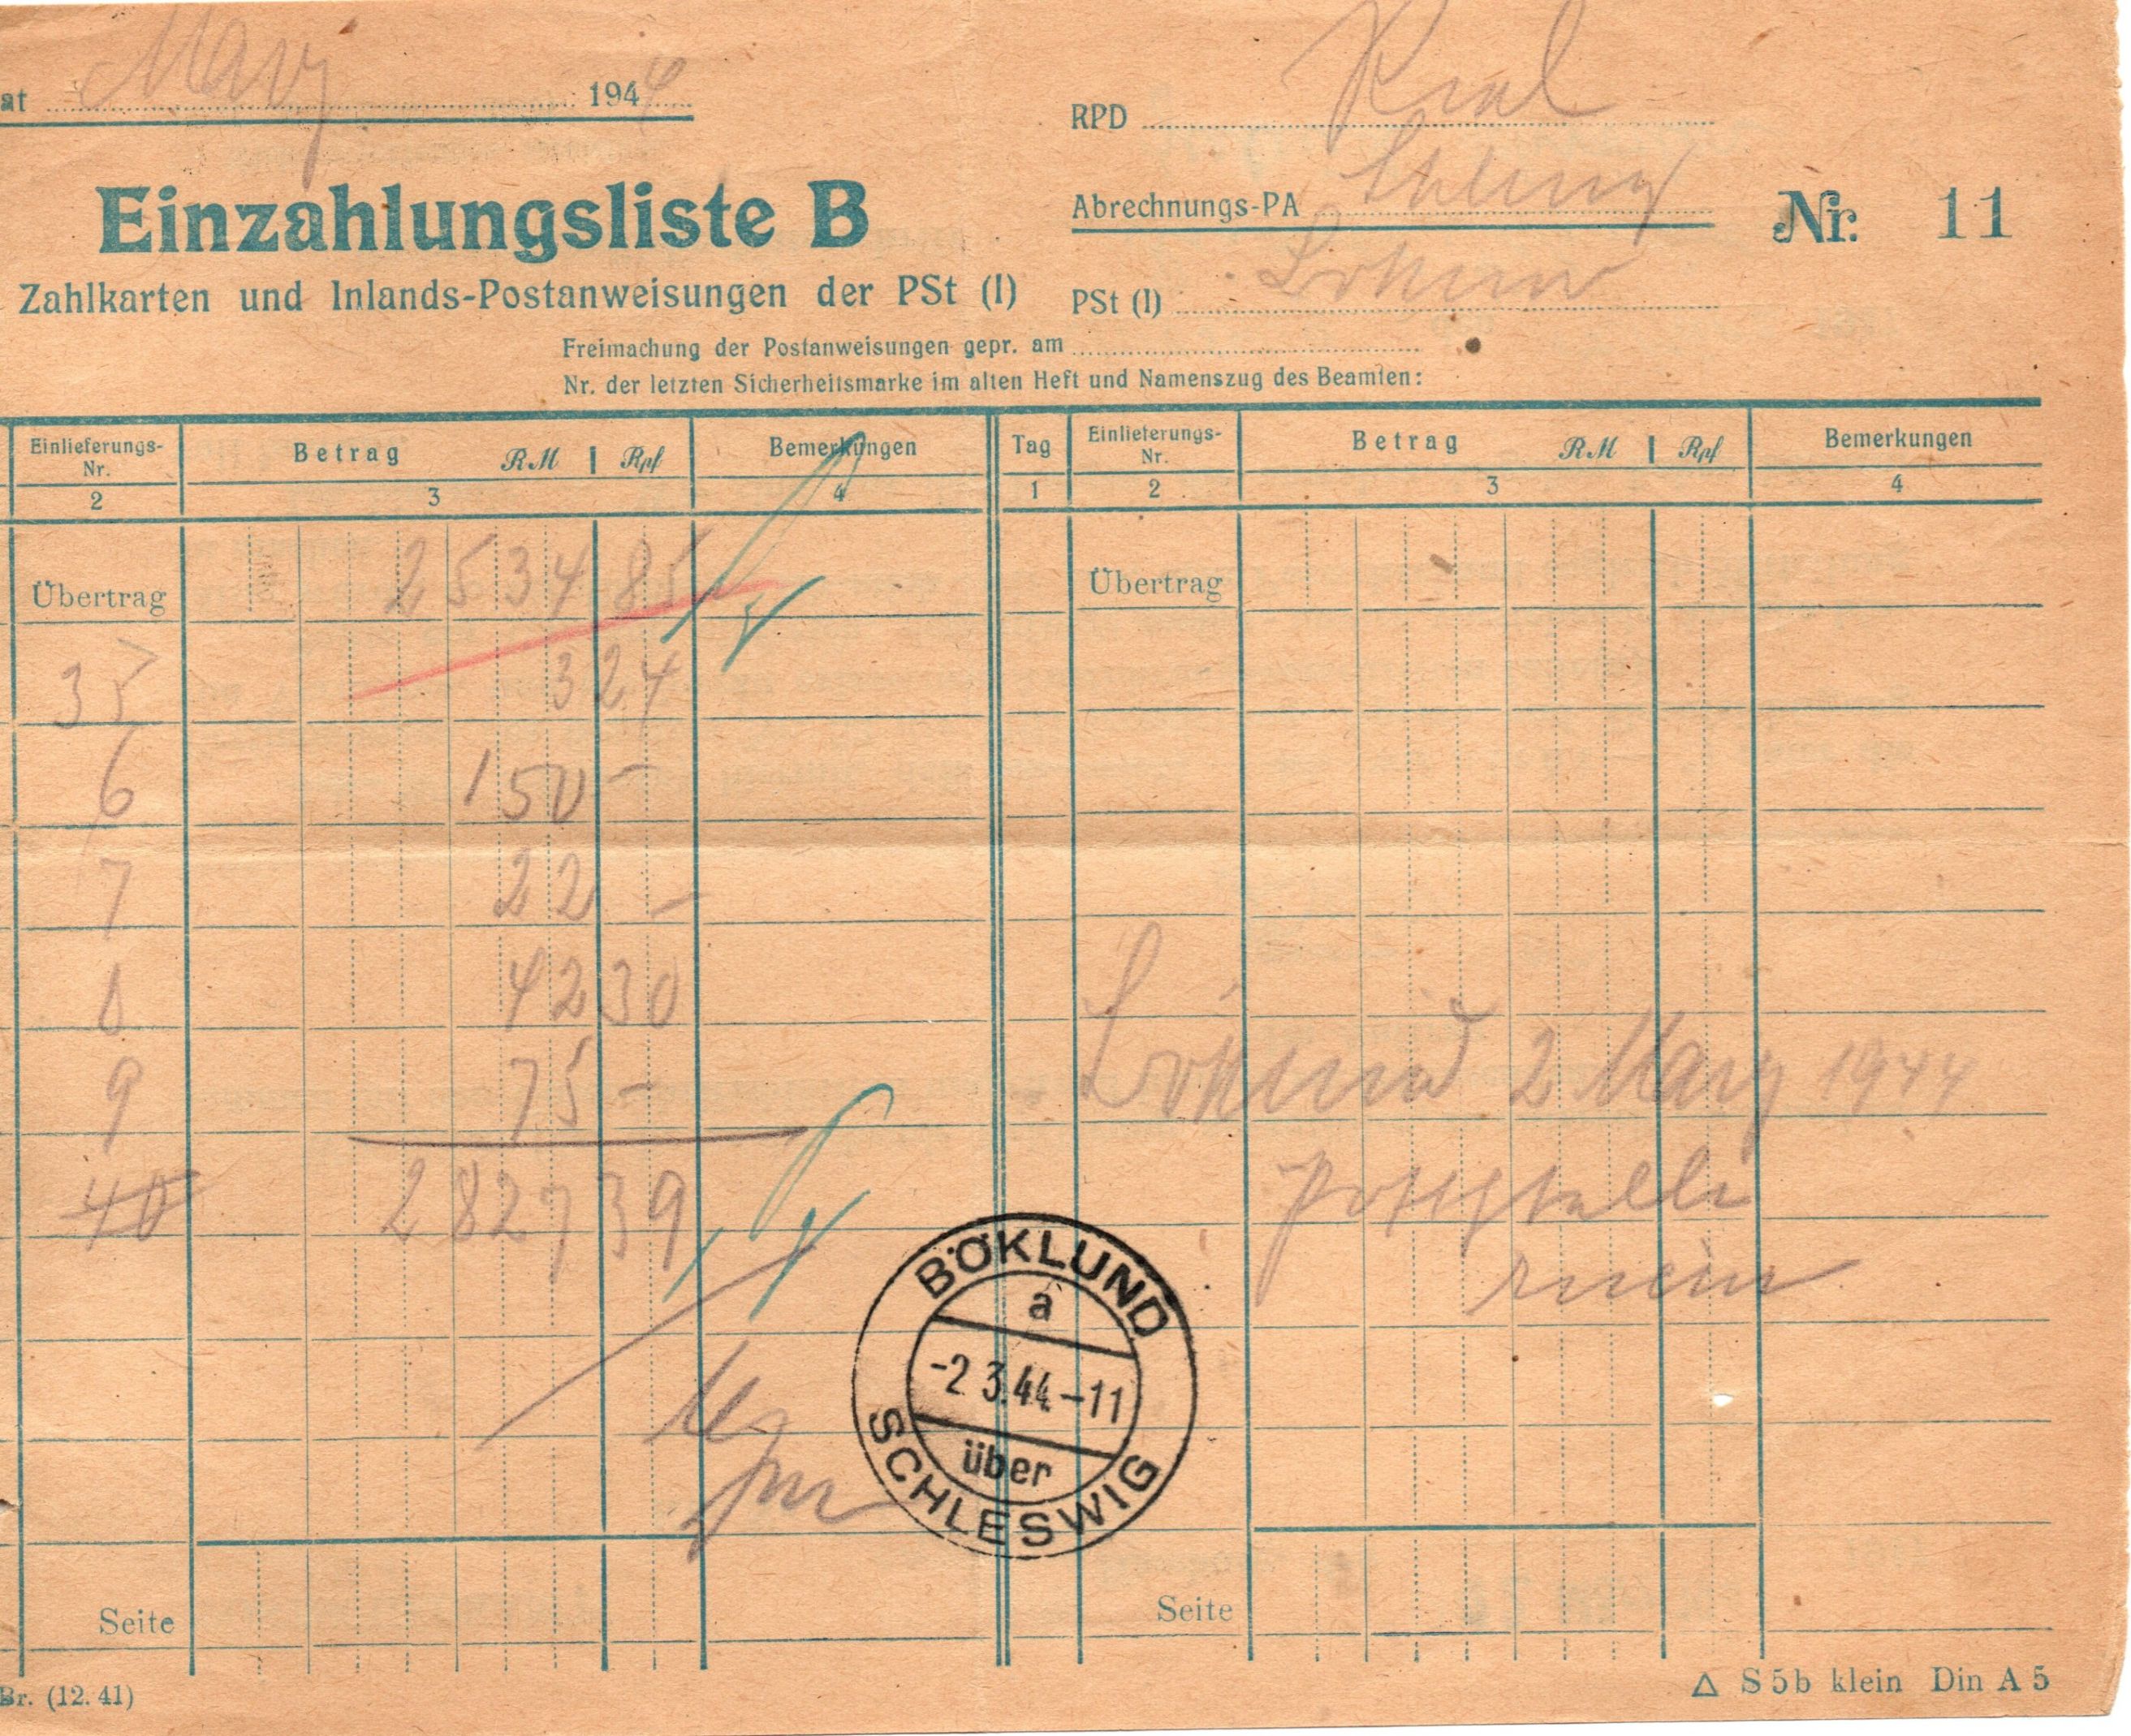 at März 1944
RPD Kiel
Einzahlungsliste B
Abrechnungs-PA Schleswig
Nr. 11
Zahlkarten und Inlands-Postanweisungen der PSt (I)
PSt (I) Böklund
Freimachung der Postanweisungen gepr. am
Nr. der letzten Sicherheitsmarke im alten Heft und Namenszug des Beamten:
Einlieferungs-Nr. Betrag RM | Rpf Bemerkungen Tag Einlieferungs-Nr. Betrag RM | Rpf Bemerkungen
2 3 4 1 2 3 4
Übertrag 2534 85 Übertrag
35 3 24
6 150 –
7 22 –
8 42 30
9 75 –
40 2827 39
Böklund 2 März 1944
Poststelle
BÖKLUND
a
-2.3.44-11
über
SCHLESWIG
Seite Seite
Br. (12. 41)
△ S 5b klein Din A 5